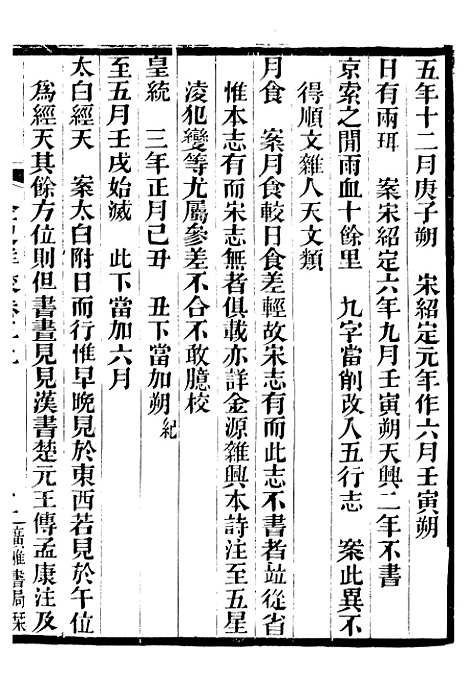 五年十二月庚子朔　宋紹定元年作六月壬寅朔
日有兩珥　案宋紹定六年九月壬寅朔天興二年不書
京索之閒雨血十餘里　九字當削改入五行志　案此異不
得順文雜入天文類
月食　案月食較日食差輕故宋志有而此志不書者竝從省
惟本志有而宋志無者俱載亦詳金源雜興本詩注至五星
淩犯變等尤屬參差不合不敢臆校
皇統　三年正月己丑　丑下當加朔紀
至五月壬戌始滅　此下當加六月
太白經天　案太白附日而行惟早晚見於東西若見於午位
爲經天其餘方位則但書晝見見漢書楚元王傳孟康注及
廣雅書局栞